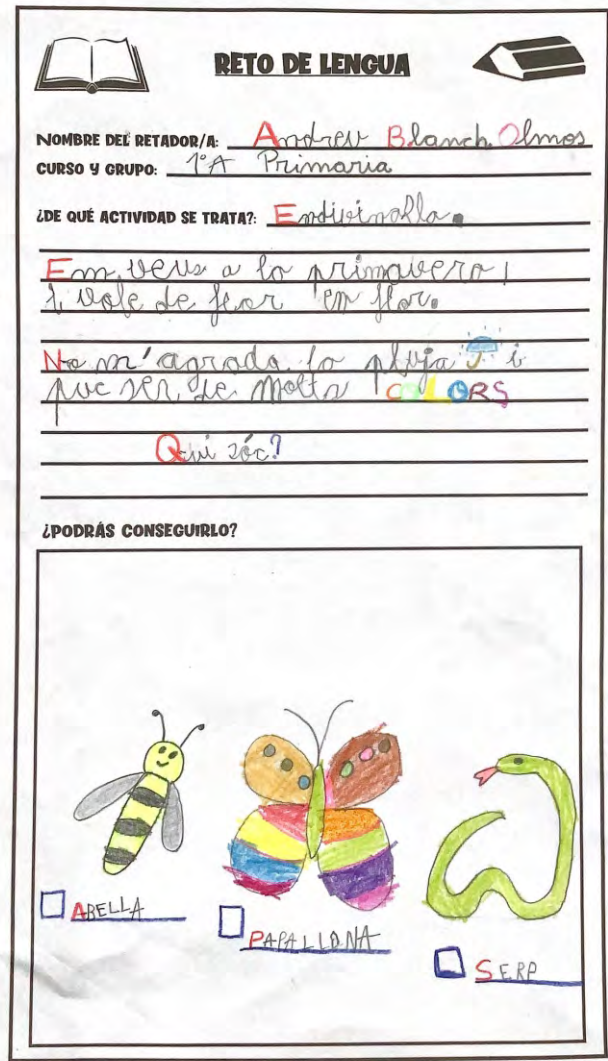 RETO DE LENGUA
NOMBRE DEL RETADOR/A: Andreu Blanch Olmos
CURSO Y GRUPO: 1ºA Primaria
¿DE QUÉ ACTIVIDAD SE TRATA?: Endivinalla.
Em veus a la primavera,
i vole de flor en flor.
No m'agrada la pluja i
puc ser de molts COLORS
Qui sóc?
¿PODRÁS CONSEGUIRLO?
ABELLA
PAPALLONA
SERP